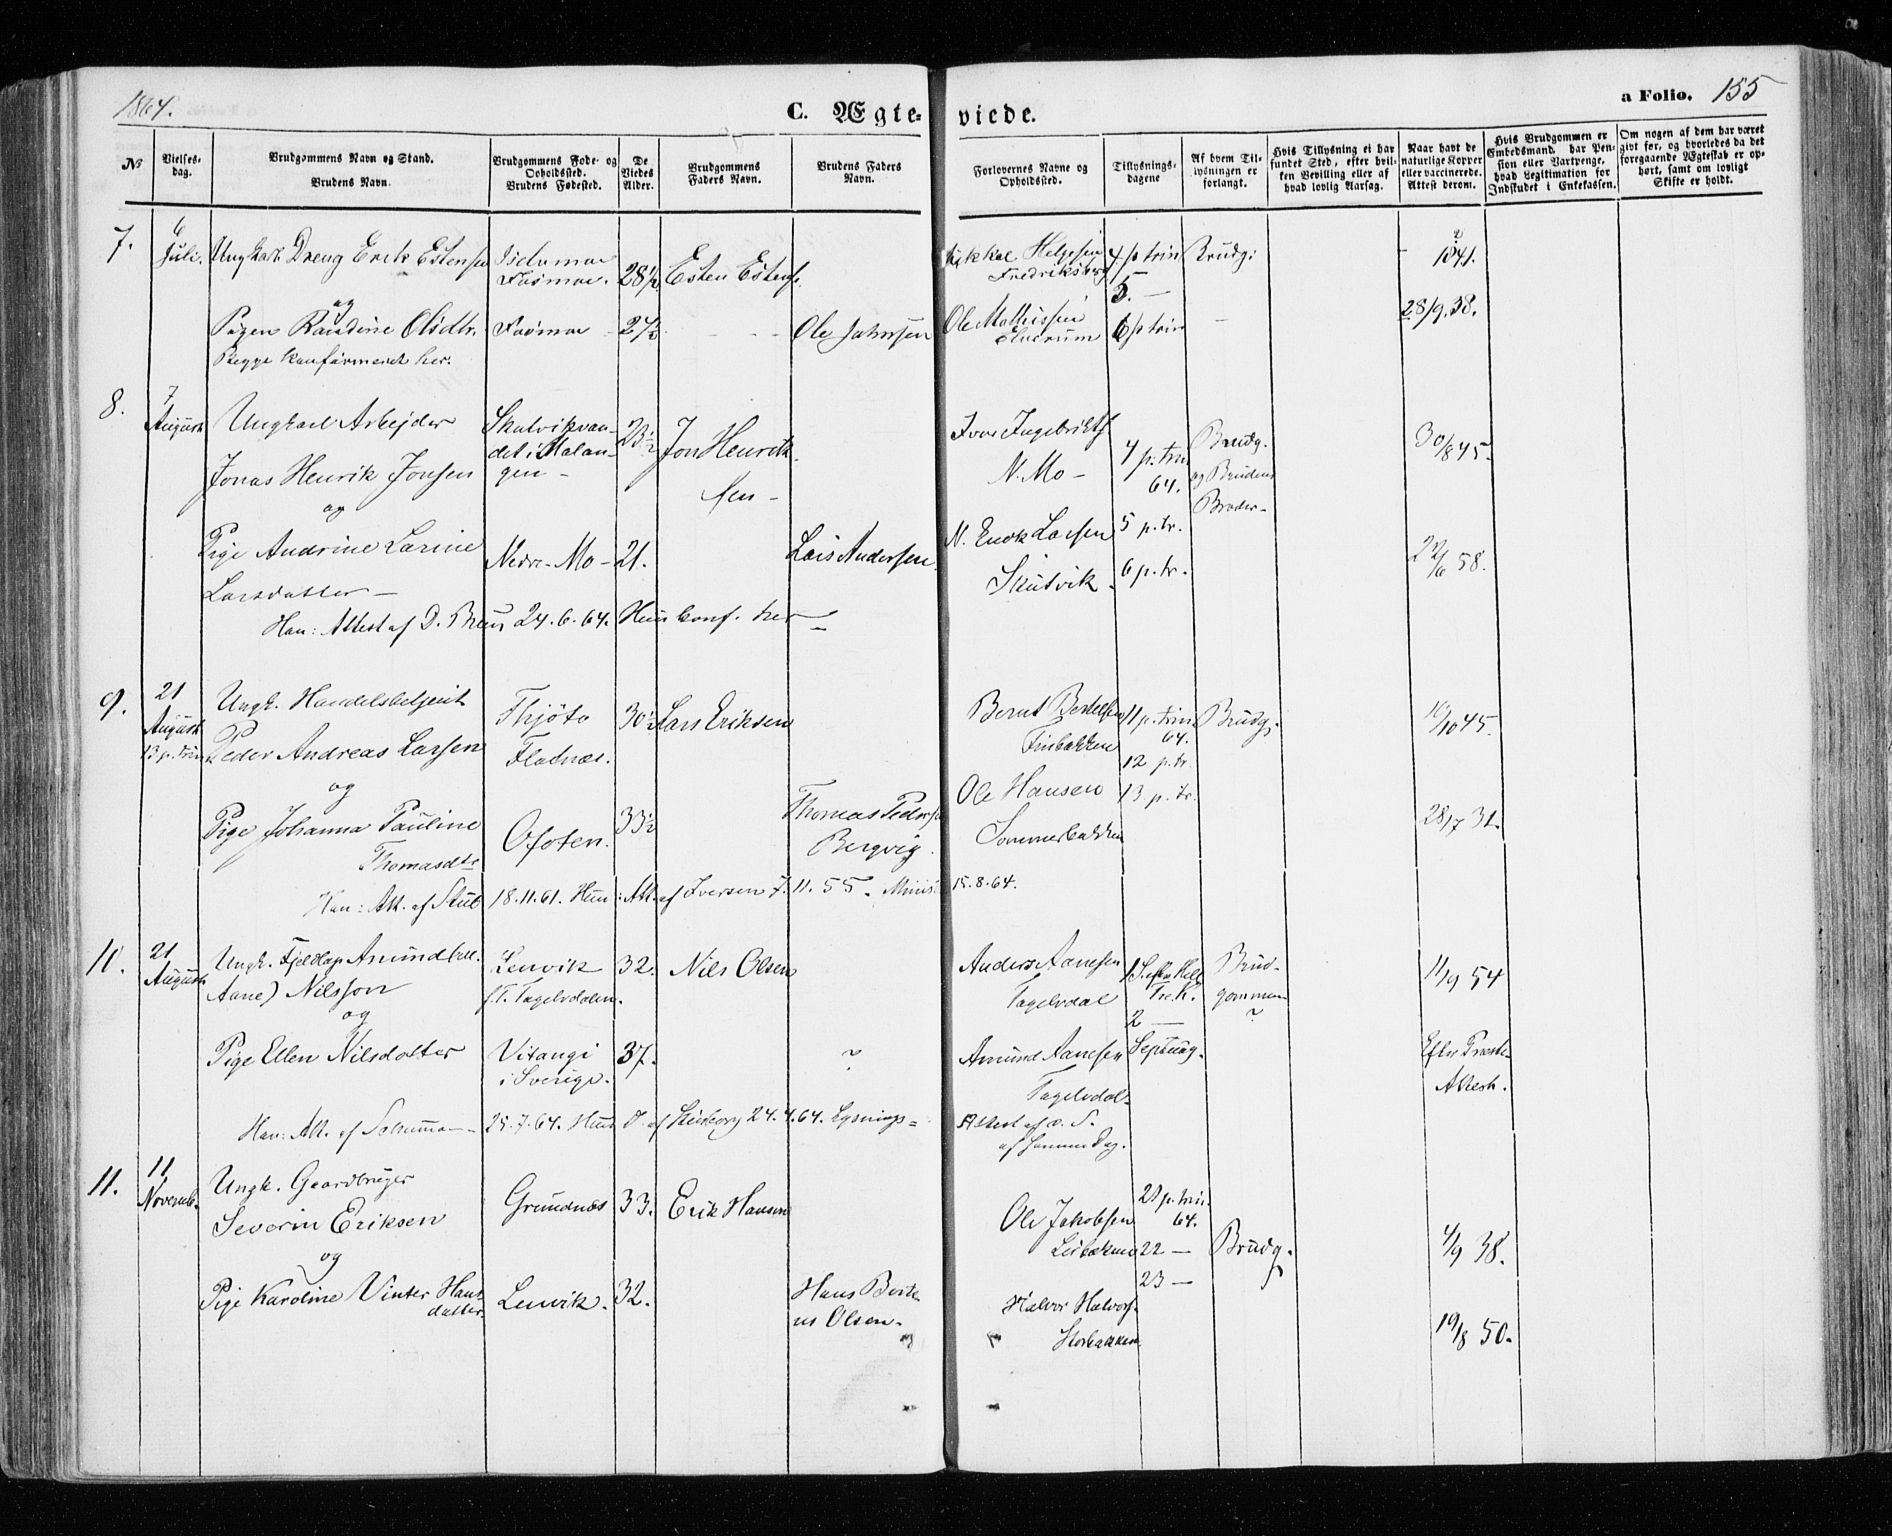 1864.
C. Ægte-
viede.
a Folio. 155
No
Vielses-
dag.
Brudgommens Navn og Stand.
Brudens Navn.
Brudgommens Føde- og
Opholdssted.
Brudens Fødested.
De
Viedes
Alder.
Brudgommens
Faders Navn.
Brudens Faders
Navn.
Forlovernes Navne og
Opholdssted.
Tillysnings-
dagene
Af hvem Til-
lysningen er
forlangt.
Hvis Tillysning ei har
fundet Sted, efter hvil-
ken Bevilling eller af
hvad lovlig Aarsag.
Naar havt de
naturlige Kopper
eller vaccinerede.
Attest derom.
Hvis Brudgommen er
Embedsmand, har Pen-
sion eller Vartpenge,
hvad Legitimation for
Indskudet i Enkekassen.
Om nogen af dem har været
givt før, og hvorledes da det
foregaaende Ægteskab er op-
hørt, samt om lovligt
Skifte er holdt.
7.
6
Juli.
Ungkarl Dreng Erik Estensen
Fosmoe.
28½
Esten Estens.
Helgesen
Fredriksberg
4 p trin
Brudg:
1841.
5. —
og
Pigen Randine Olsdtr.
Fosmoe
Ole Johnsen
Ole Mathissen
Elverum
6 p trin
28/9. 38.
Begge konfirmeret her.
8.
7
August
Ungkarl Arbejder
Jonas Henrik Jonsen
og
Skutvikvan-
det i Malan-
gen —
23½
Jon Henrik-
sen —
Iver Ingebrigts
N. Mo —
4 p. trin
64.
Brudg.
og Brudens
Broder —
30/8 45.
Pige Andrine Larine
Larsdatter —
Nedre Mo —
21.
Lars Andersen
N. Enok Larsen
Skutvik.
5 p. tr.
6 p. tr.
22/6 58.
Han: Attest af D. Breus 24.6.64. Hun konf. her —
9.
21
August
13 p. trin
Ungk. Handelsbetjent
Peder Andreas Larsen
og
Thjøtø
Flatnes.
30½
Lars Eriksen
Bernt Bertelsen
Finbakken
11 p. trin
64.
12 p. tr.
Brudg.
/10 45.
Pige Johanna Pauline
Thomasdtr
Ofoten.
33½
Thomas Peders
Bergvig.
Ole Hansen
Sommerbakken
13 p. tr.
28/7 31.
Han: Att. af Stub 18.11.61. Hun: Att. af Iversen 7.11.55. Minist 15.8.64.
10.
21
August
Ungk. Fjeldlap Amund
Aane) Nilsson
og
Lenvik
f. T. Tagelvdalen.
32.
Nils Olsen
Anders Aanesen
Tagelvdal
1 S. efter Hell
Tre K.
2 —
Brud-
gommen
?
11/9 54
Pige Ellen Nilsdatter
Vitangi
i Sverige.
37.
?
Amund Aanesen
Tagelvdal
Septuag.
Efter Præste
Attest.
Han: Att. af Schumann 25.7.64. Hun D. af 24.4.64. Lysnings- Attest af s. S.
af samme Dag.
11.
11
Novemb.
Ungk. Gaardbruger
Severin Eriksen
og
Grundnes
33.
Erik Hansen
Ole Jakobsen
21 p. trin.
64.
22 —
23 —
Brudg.
4/9 38.
Pige Karoline Vinter Hans-
datter.
Lenvik.
32.
Hans Bert-
us Olsen.
Halvor Halvors.
Storbakken
19/8 50.